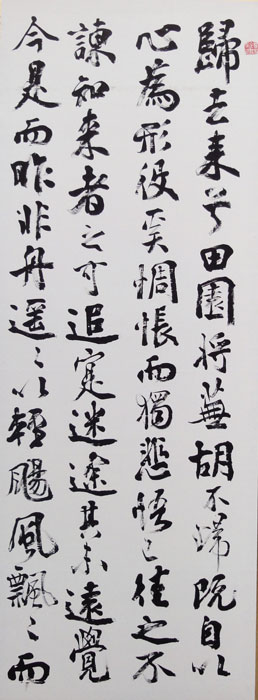 歸去来兮田園將蕪胡不歸既自以
心為形役奚惆悵而獨悲悟已往之不
諫知来者之可追寔迷途其未遠覺
今是而昨非舟遥〻以輕颺風飄〻而